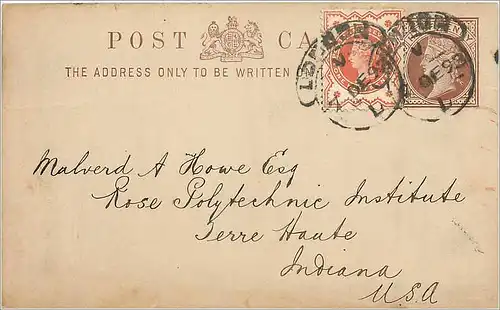 POST CA
THE ADDRESS ONLY TO BE WRITTEN
Malverd A Howe Esq
Rose Polytechnic Institute
Terre Haute
Indiana
U.S.A